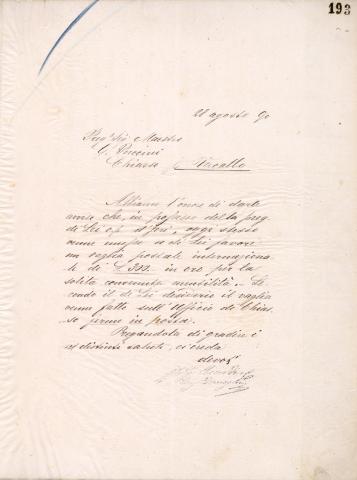 193
28 agosto 90
Preg. Sig. Maestro
G. Puccini
Chiasso p. Vacallo
Abbiamo l'onore di darle
avviso che, in possesso della preg.
di Lei c.p. d'jeri, oggi stesso
venne messo a di Lei favore
un vaglia postale internaziona-
le di L. 300.- in oro per la
solita convenuta mensilità. Se-
condo il di Lei desiderio il vaglia
venne fatto sull'Ufficio di Chias-
so fermo in posta.
Pregandola di gradire i
ns/ distinti saluti, ci creda
devot.